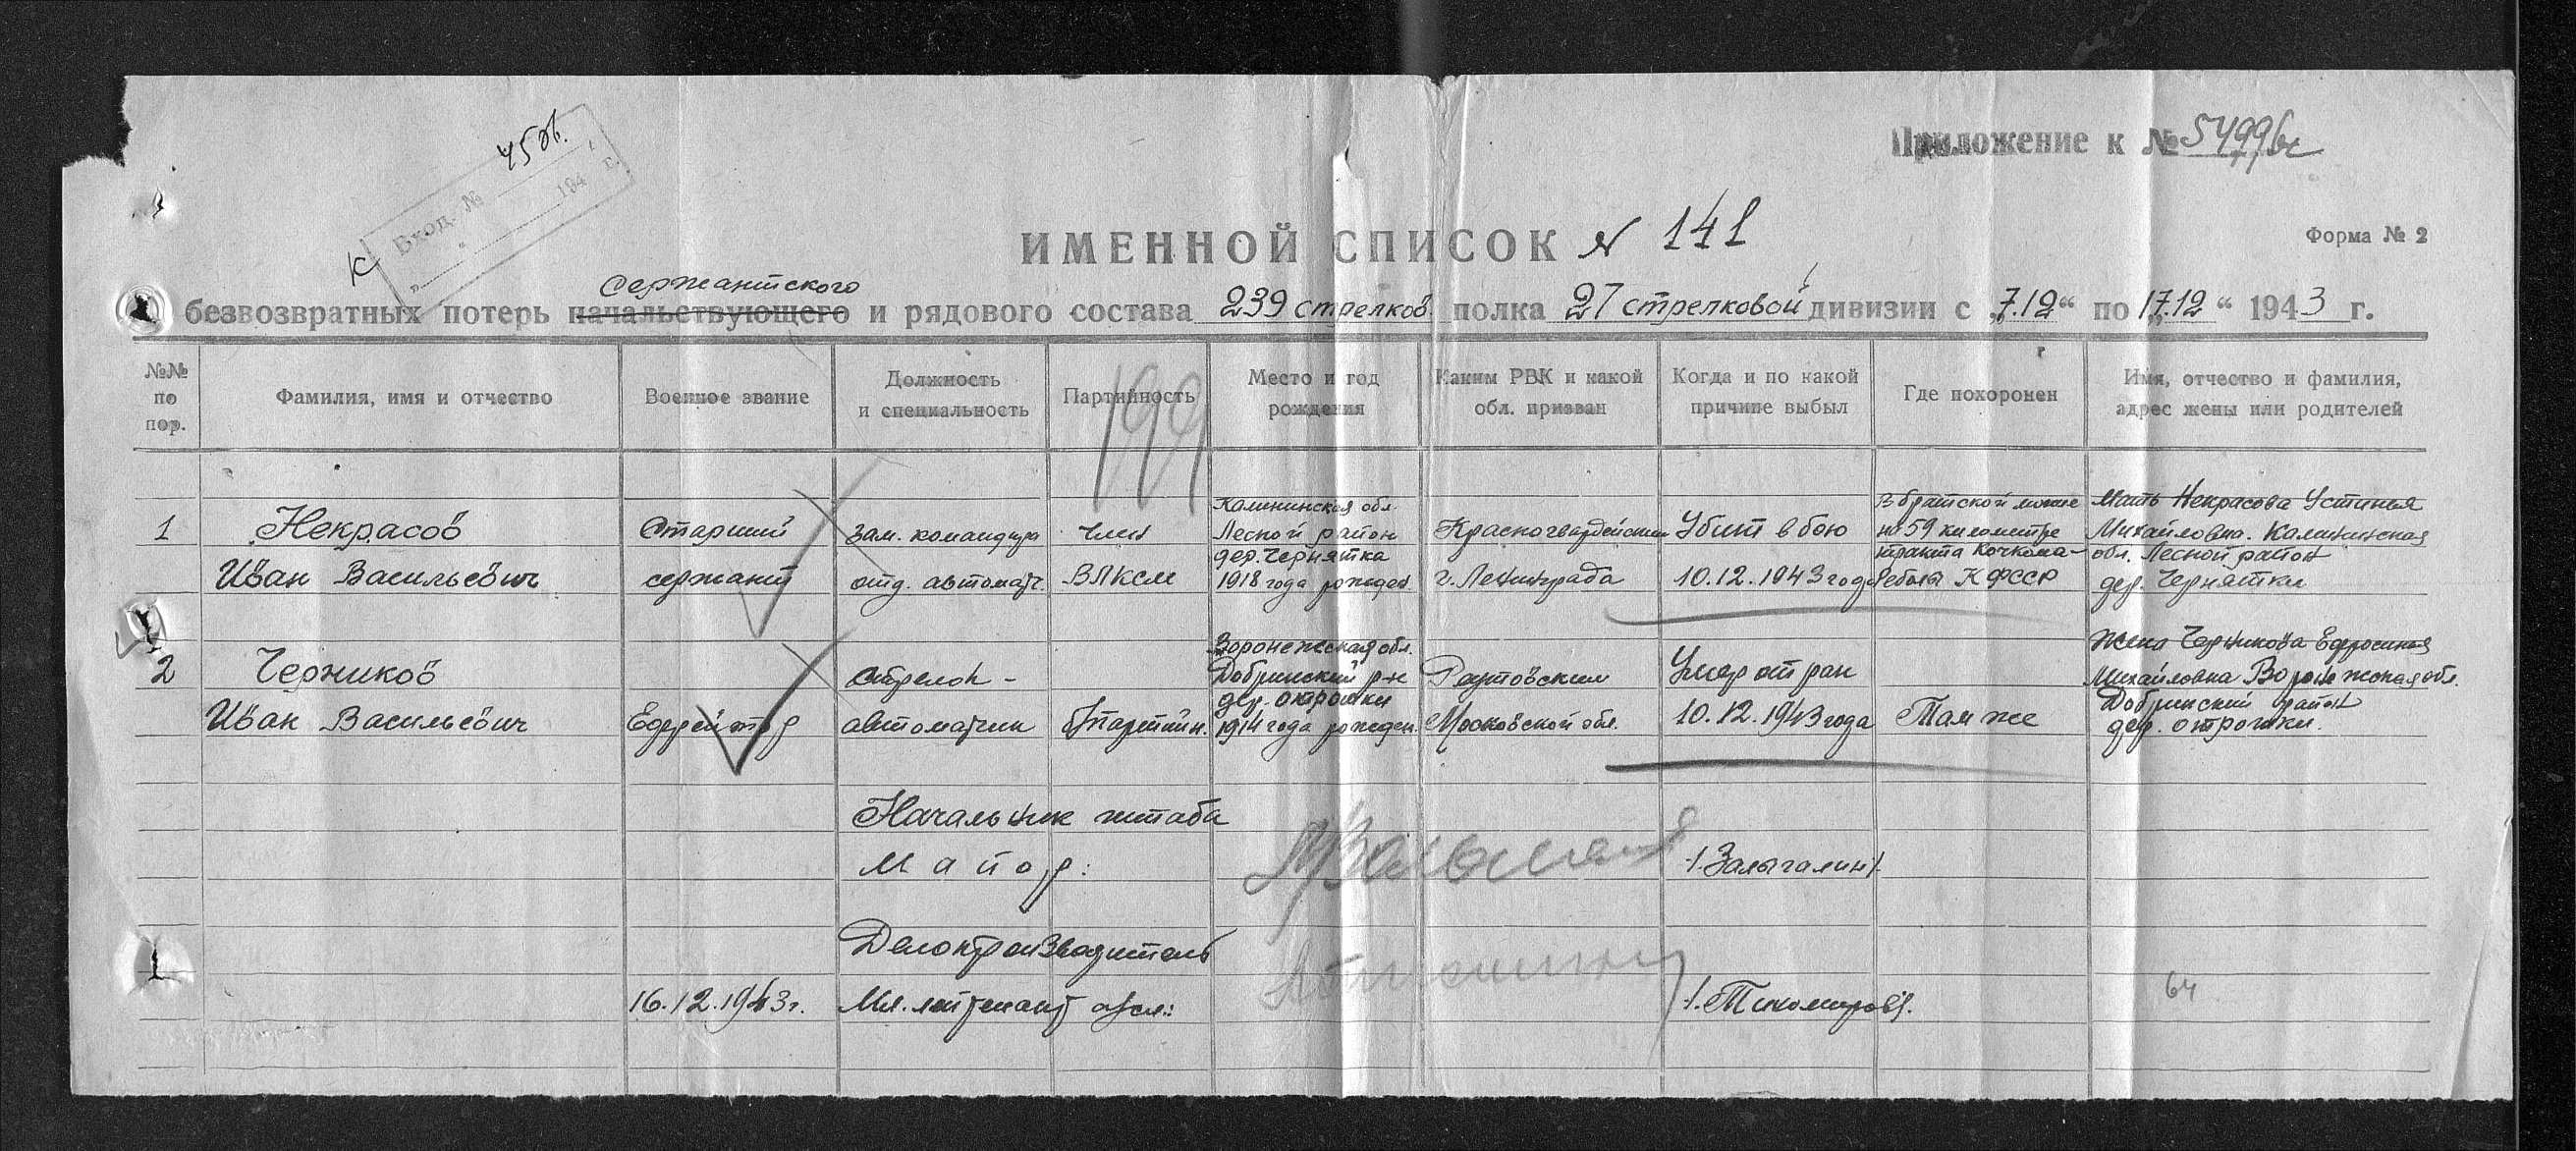 45 об.
Вход. №
194 г.
К
Приложение к № 5499бс
ИМЕННОЙ СПИСОК № 141
Форма № 2
Сержантского
безвозвратных потерь начальствующего и рядового состава 239 стрелков. полка 27 стрелковой дивизии с „7.12“ по „17.12“ 1943 г.
№№ по пор.
Фамилия, имя и отчество
Военное звание
Должность и специальность
Партийность
Место и год рождения
Каким РВК и какой обл. призван
Когда и по какой причине выбыл
Где похоронен
Имя, отчество и фамилия, адрес жены или родителей
199
1
Некрасов
Иван Васильевич
Старший
сержант
зам. командира
отд. автоматч.
член
ВЛКСМ
Калининская обл.
Лесной район
дер. Чернятка
1918 года рожден.
Красногвардейским
г. Ленинграда
Убит в бою
10.12.1943 года
В братской могиле
на 59 километре
тракта Кочкома-
Ребола КФССР
Мать Некрасова Устинья
Михайловна. Калининская
обл. Лесной район
дер. Чернятки
2
Черников
Иван Васильевич
Ефрейтор
стрелок -
автоматчик
б/партийн.
Воронежская обл.
Добринский р-н
дер. отрошки
1914 года рожден.
Реутовским
Московской обл.
Умер от ран
10.12.1943 года
Там же
Жена Черникова Ефросиния
Михайловна Воронежская обл.
Добринский район
дер. отрошки.
Начальник штаба
Майор:
/Залыгалин/
Делопроизводитель
16.12.1943г.
Мл. лейтенант а/сл.:
/Тихомиров/.
64